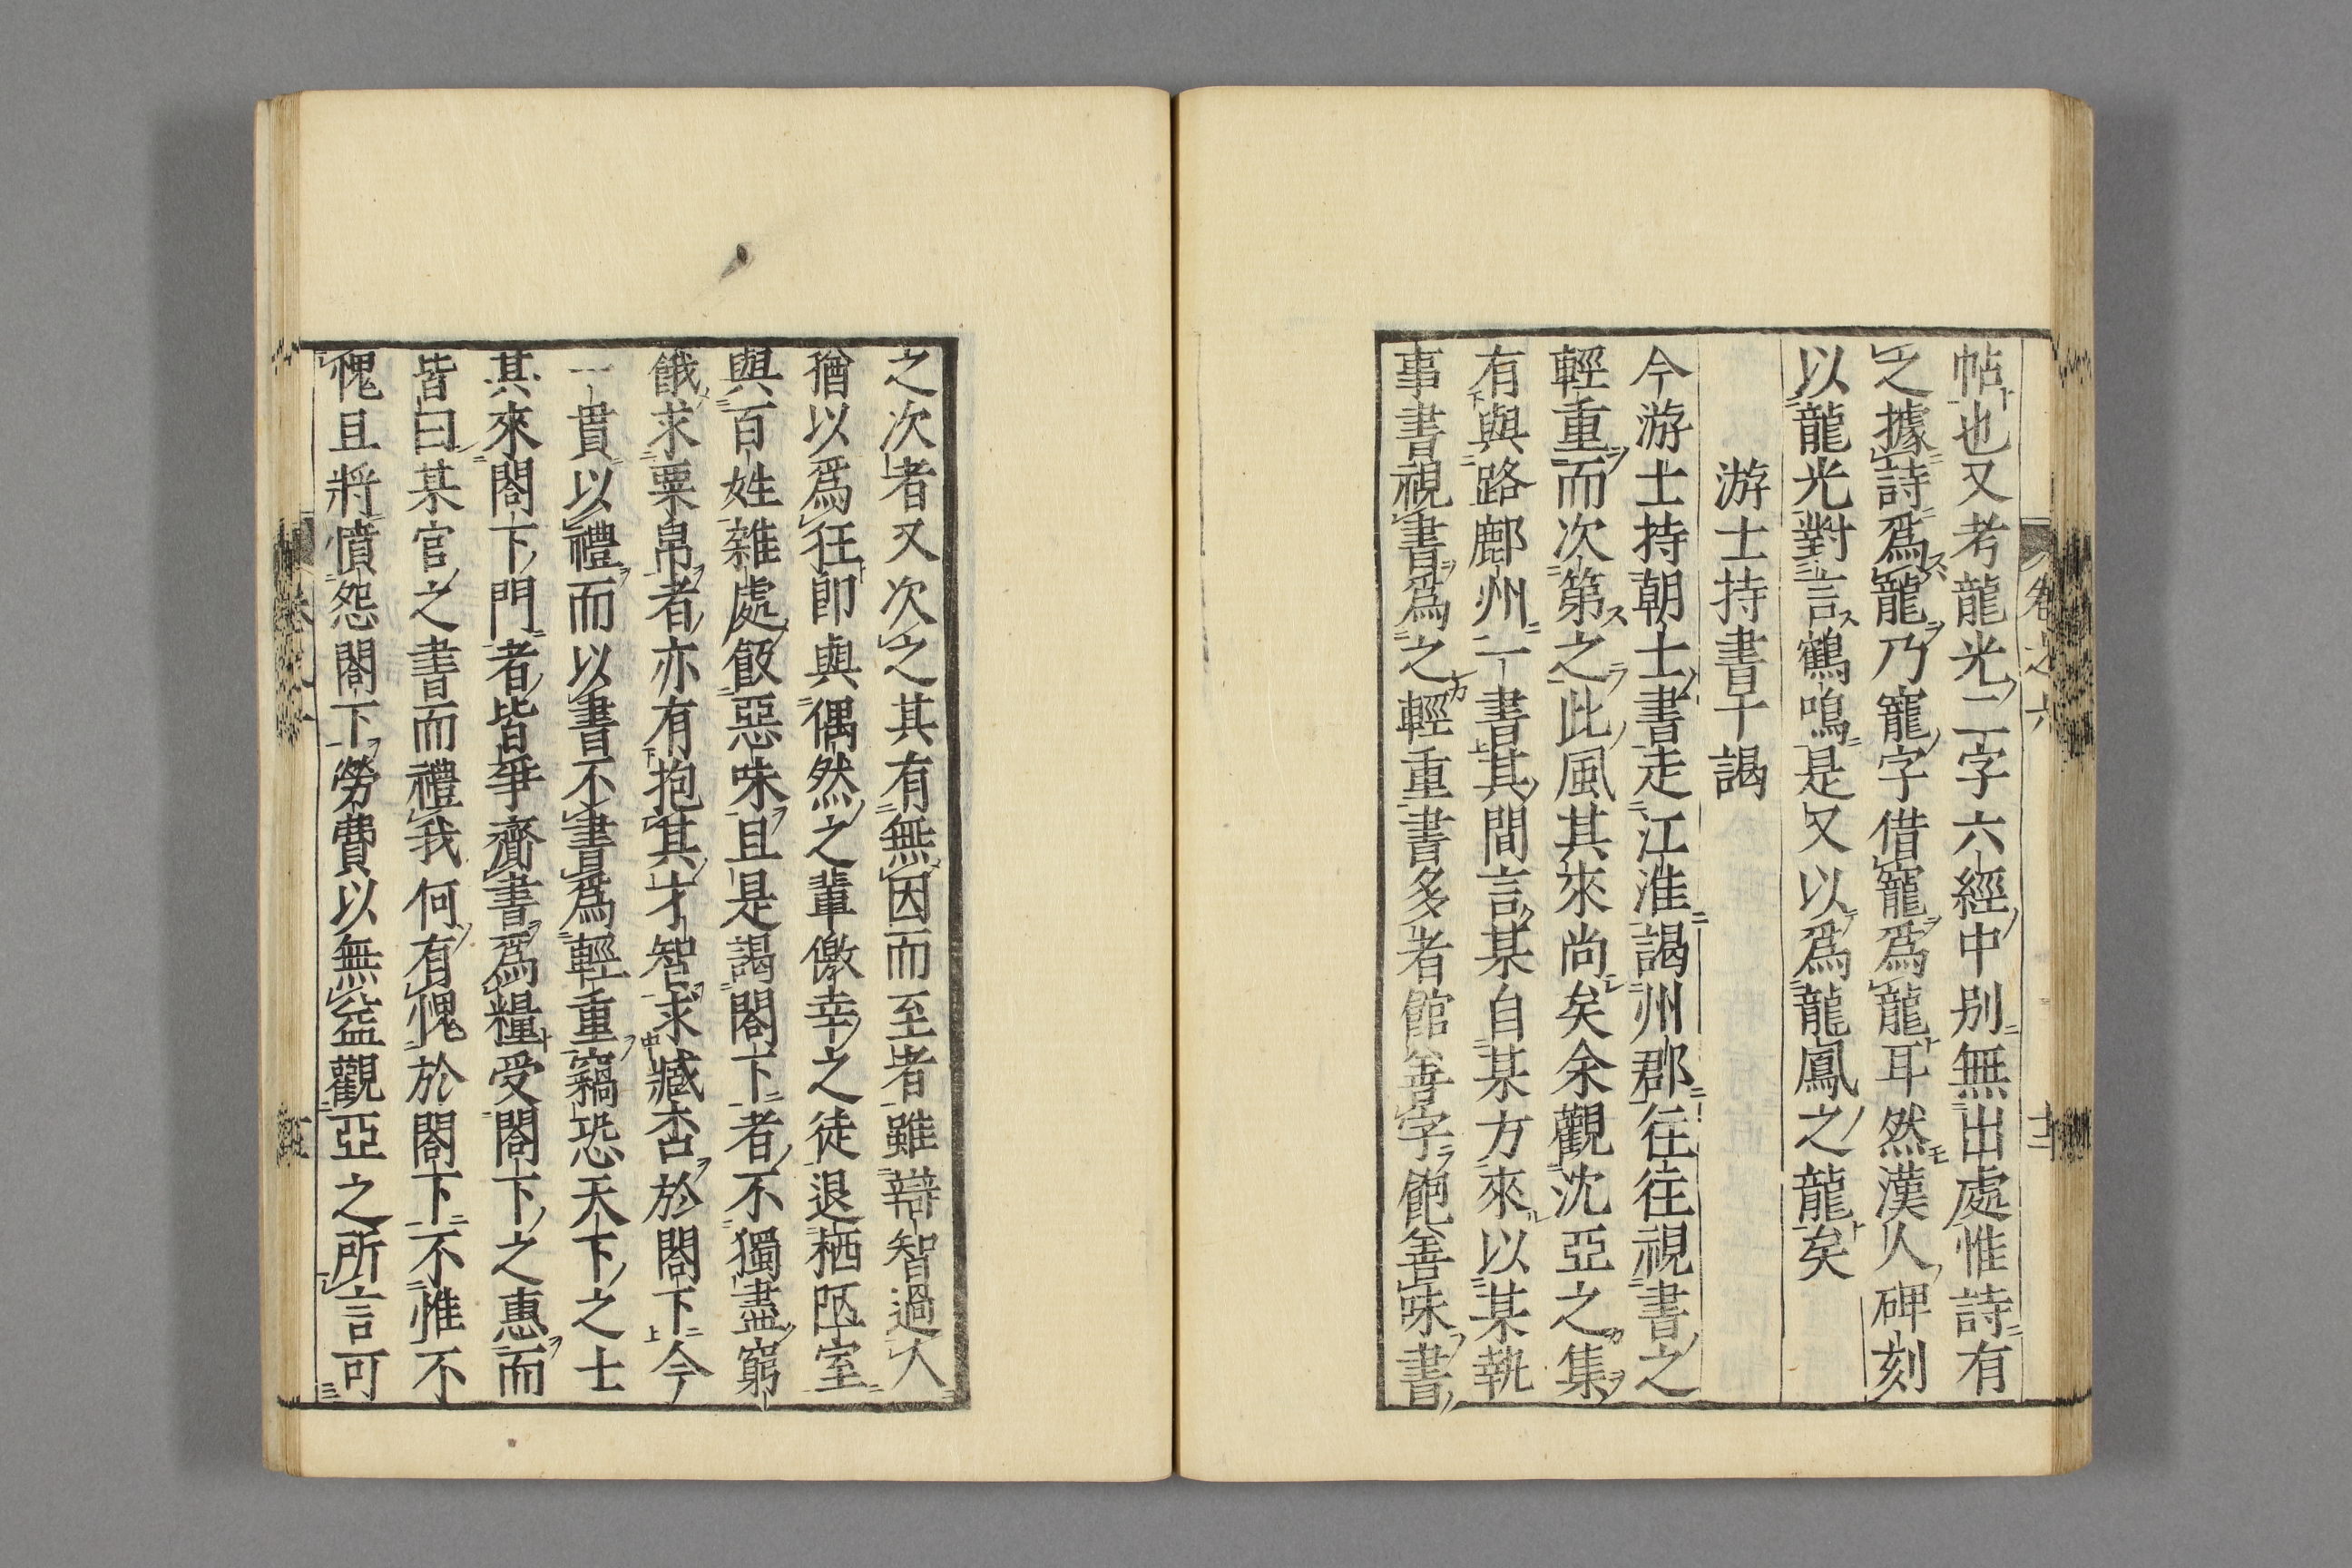 帖也又考龍光二字六經中別無出處惟詩有
之據詩爲龍乃寵字借寵爲龍耳然漢人碑刻
以龍光對言鶴鳴是又以爲龍鳳之龍矣
游士持書干謁
今游士持朝士書走江淮謁州郡往往視書之
輕重而次第之此風其來尚矣余觀沈亞之集
有與路鄜州一書其間言某自某方來以某執
事書視書爲之輕重書多者館善字飽善味書
之次者又次之其有無因而至者雖辯智過人
猶以爲狂卽與偶然之輩儌幸之徒退栖陋室
與百姓雜處飯惡味且是謁閤下者不獨盡窮
餓求粟帛者亦有抱其才智求臧否於閤下今
一貫以禮而以書不書爲輕重竊恐天下之士
其來閤下門者皆爭齎書爲糧受閤下之惠而
皆曰某官之書而禮我何有愧於閤下不惟不
愧且將憤怨閤下勞費以無益觀亞之所言可
卷之六
十二